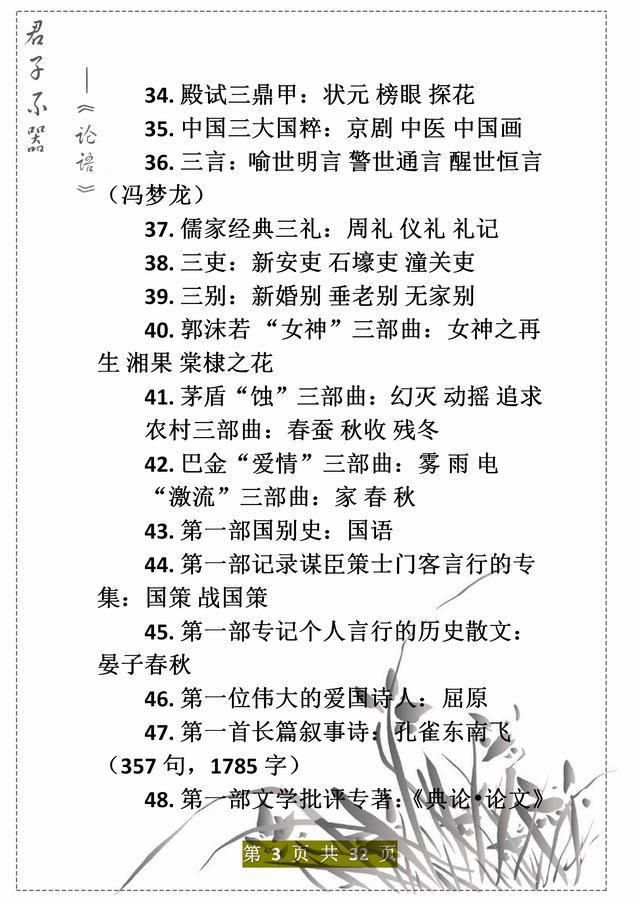 君子不器
—《论语》
34. 殿试三鼎甲：状元 榜眼 探花
35. 中国三大国粹：京剧 中医 中国画
36. 三言：喻世明言 警世通言 醒世恒言
（冯梦龙）
37. 儒家经典三礼：周礼 仪礼 礼记
38. 三吏：新安吏 石壕吏 潼关吏
39. 三别：新婚别 垂老别 无家别
40. 郭沫若 “女神”三部曲：女神之再
生 湘果 棠棣之花
41. 茅盾“蚀”三部曲：幻灭 动摇 追求
农村三部曲：春蚕 秋收 残冬
42. 巴金“爱情”三部曲：雾 雨 电
“激流”三部曲：家 春 秋
43. 第一部国别史：国语
44. 第一部记录谋臣策士门客言行的专
集：国策 战国策
45. 第一部专记个人言行的历史散文：
晏子春秋
46. 第一位伟大的爱国诗人：屈原
47. 第一首长篇叙事诗：孔雀东南飞
（357 句，1785 字）
48. 第一部文学批评专著：《典论•论文》
第 3 页 共 32 页